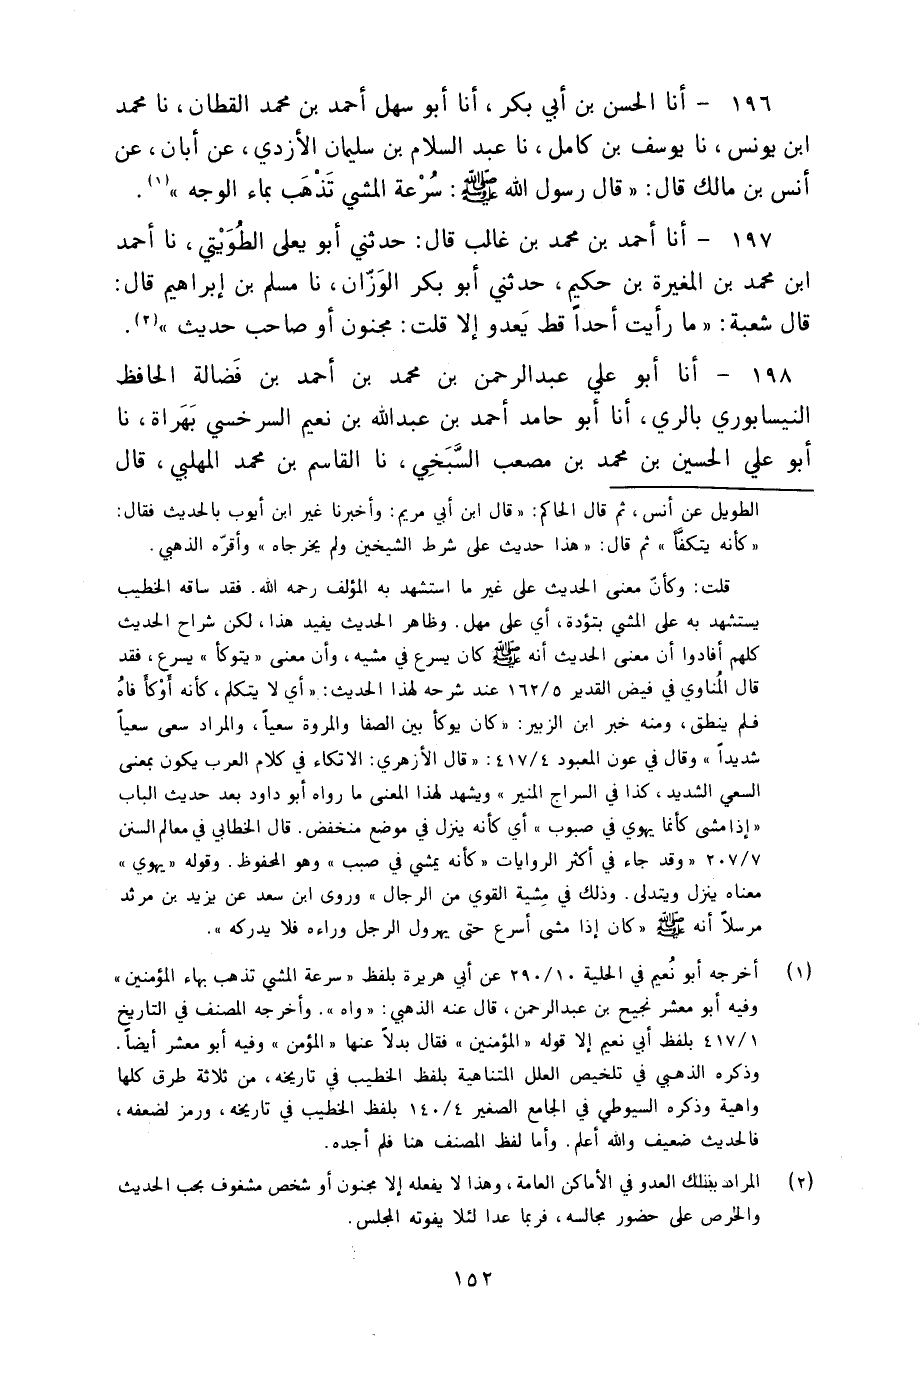 ١٩٦ - أنا الحسن بن أبي بكر، أنا أبو سهل أحمد بن محمد القطان، نا محمد
ابن يونس، نا يوسف بن كامل، نا عبد السلام بن سليمان الأزدي، عن أبان، عن
أنس بن مالك قال: « قال رسول الله ﷺ: سُرْعة المشي تَذْهَب بماء الوجه »(١).
١٩٧ - أنا أحمد بن محمد بن غالب قال: حدثني أبو يعلى الطُوَيْتي، نا أحمد
ابن محمد بن المغيرة بن حكيم، حدثني أبو بكر الوَزّان، نا مسلم بن إبراهيم قال:
قال شعبة: « ما رأيت أحداً قط يَعدو إلا قلت: مجنون أو صاحب حديث »(٢).
١٩٨ - أنا أبو علي عبدالرحمن بن محمد بن أحمد بن فَضالة الحافظ
النيسابوري بالري، أنا أبو حامد أحمد بن عبدالله بن نعيم السرخسي بَهَراة، نا
أبو علي الحسين بن محمد بن مصعب السَّبَخِي، نا القاسم بن محمد المهلبي، قال
الطويل عن أنس، ثم قال الحاكم: « قال ابن أبي مريم: وأخبرنا غير ابن أيوب بالحديث فقال:
« كأنه يتكفَّأ » ثم قال: « هذا حديث على شرط الشيخين ولم يخرجاه » وأقرّه الذهبي.
قلت: وكأنّ معنى الحديث على غير ما استشهد به المؤلف رحمه الله. فقد ساقه الخطيب
يستشهد به على المشي بتؤدة، أي على مهل. وظاهر الحديث يفيد هذا، لكن شراح الحديث
كلهم أفادوا أن معنى الحديث أنه ﷺ كان يسرع في مشيه، وأن معنى « يتوكأ » يسرع، فقد
قال المُناوي في فيض القدير ١٦٢/٥ عند شرحه لهذا الحديث: « أي لا يتكلم، كأنه أَوْكأَ فاهُ
فلم ينطق، ومنه خبر ابن الزبير: « كان يوكأ بين الصفا والمروة سعياً، والمراد سعى سعياً
شديداً » وقال في عون المعبود ٤١٧/٤: « قال الأزهري: الاتكاء في كلام العرب يكون بمعنى
السعي الشديد، كذا في السراج المنير » ويشهد لهذا المعنى ما رواه أبو داود بعد حديث الباب
« إذا مشى كأنما يهوي في صبوب » أي كأنه ينزل في موضع منخفض. قال الخطابي في معالم السنن
٢٠٧/٧ « وقد جاء في أكثر الروايات « كأنه يمشي في صبب » وهو المحفوظ. وقوله « يهوي »
معناه ينزل ويتدلى. وذلك في مِشية القوي من الرجال » وروى ابن سعد عن يزيد بن مرثد
مرسلاً أنه ﷺ « كان إذا مشى أسرع حتى يهرول الرجل وراءه فلا يدركه ».
(١) أخرجه أبو نُعيم في الحلية ٢٩٠/١٠ عن أبي هريرة بلفظ « سرعة المشي تذهب بهاء المؤمنين »
وفيه أبو معشر نجيح بن عبدالرحمن، قال عنه الذهبي: « واه ». وأخرجه المصنف في التاريخ
٤١٧/١ بلفظ أبي نعيم إلا قوله « المؤمنين » فقال بدلاً عنها « المؤمن » وفيه أبو معشر أيضاً.
وذكره الذهبي في تلخيص العلل المتناهية بلفظ الخطيب في تاريخه، من ثلاثة طرق كلها
واهية وذكره السيوطي في الجامع الصغير ١٤٠/٤ بلفظ الخطيب في تاريخه، ورمز لضعفه،
فالحديث ضعيف والله أعلم. وأما لفظ المصنف هنا فلم أجده.
(٢) المراد بذلك العدو في الأماكن العامة، وهذا لا يفعله إلا مجنون أو شخص مشغوف بحب الحديث
والحرص على حضور مجالسه، فربما عدا لئلا يفوته المجلس.
١٥٢